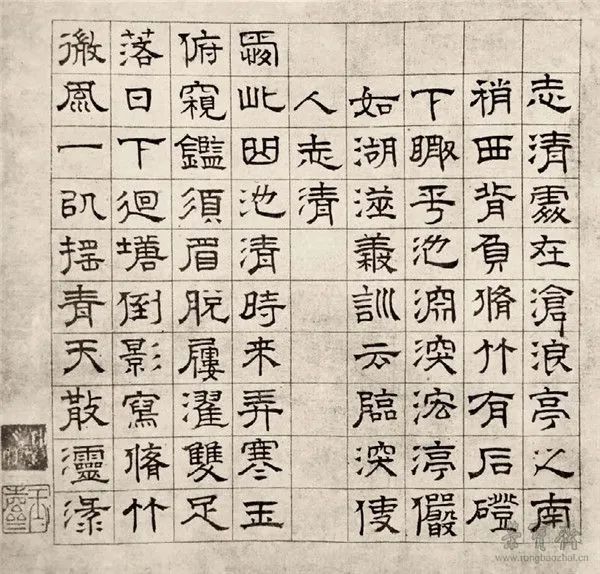 志清處在滄浪亭之南
稍西背負脩竹有石磴
下瞰平池淵深浤渟儼
如湖澨義訓云臨深使
人志清
愛此曲池清時來弄寒玉
俯窺鑑須眉脫屨濯雙足
落日下迴塘倒影寫脩竹
微風一以搖青天散淥
荣宝斋
www.rongbaozhai.cn